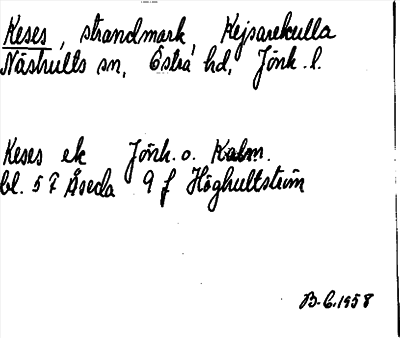 Keses, strandmark, Kejsarekulla
Näshults sn, Östra hd, Jönk. l.
Keses ek Jönk. o. Kalm.
bl. 57 Åseda 9 f Höghultström
B.C. 1958